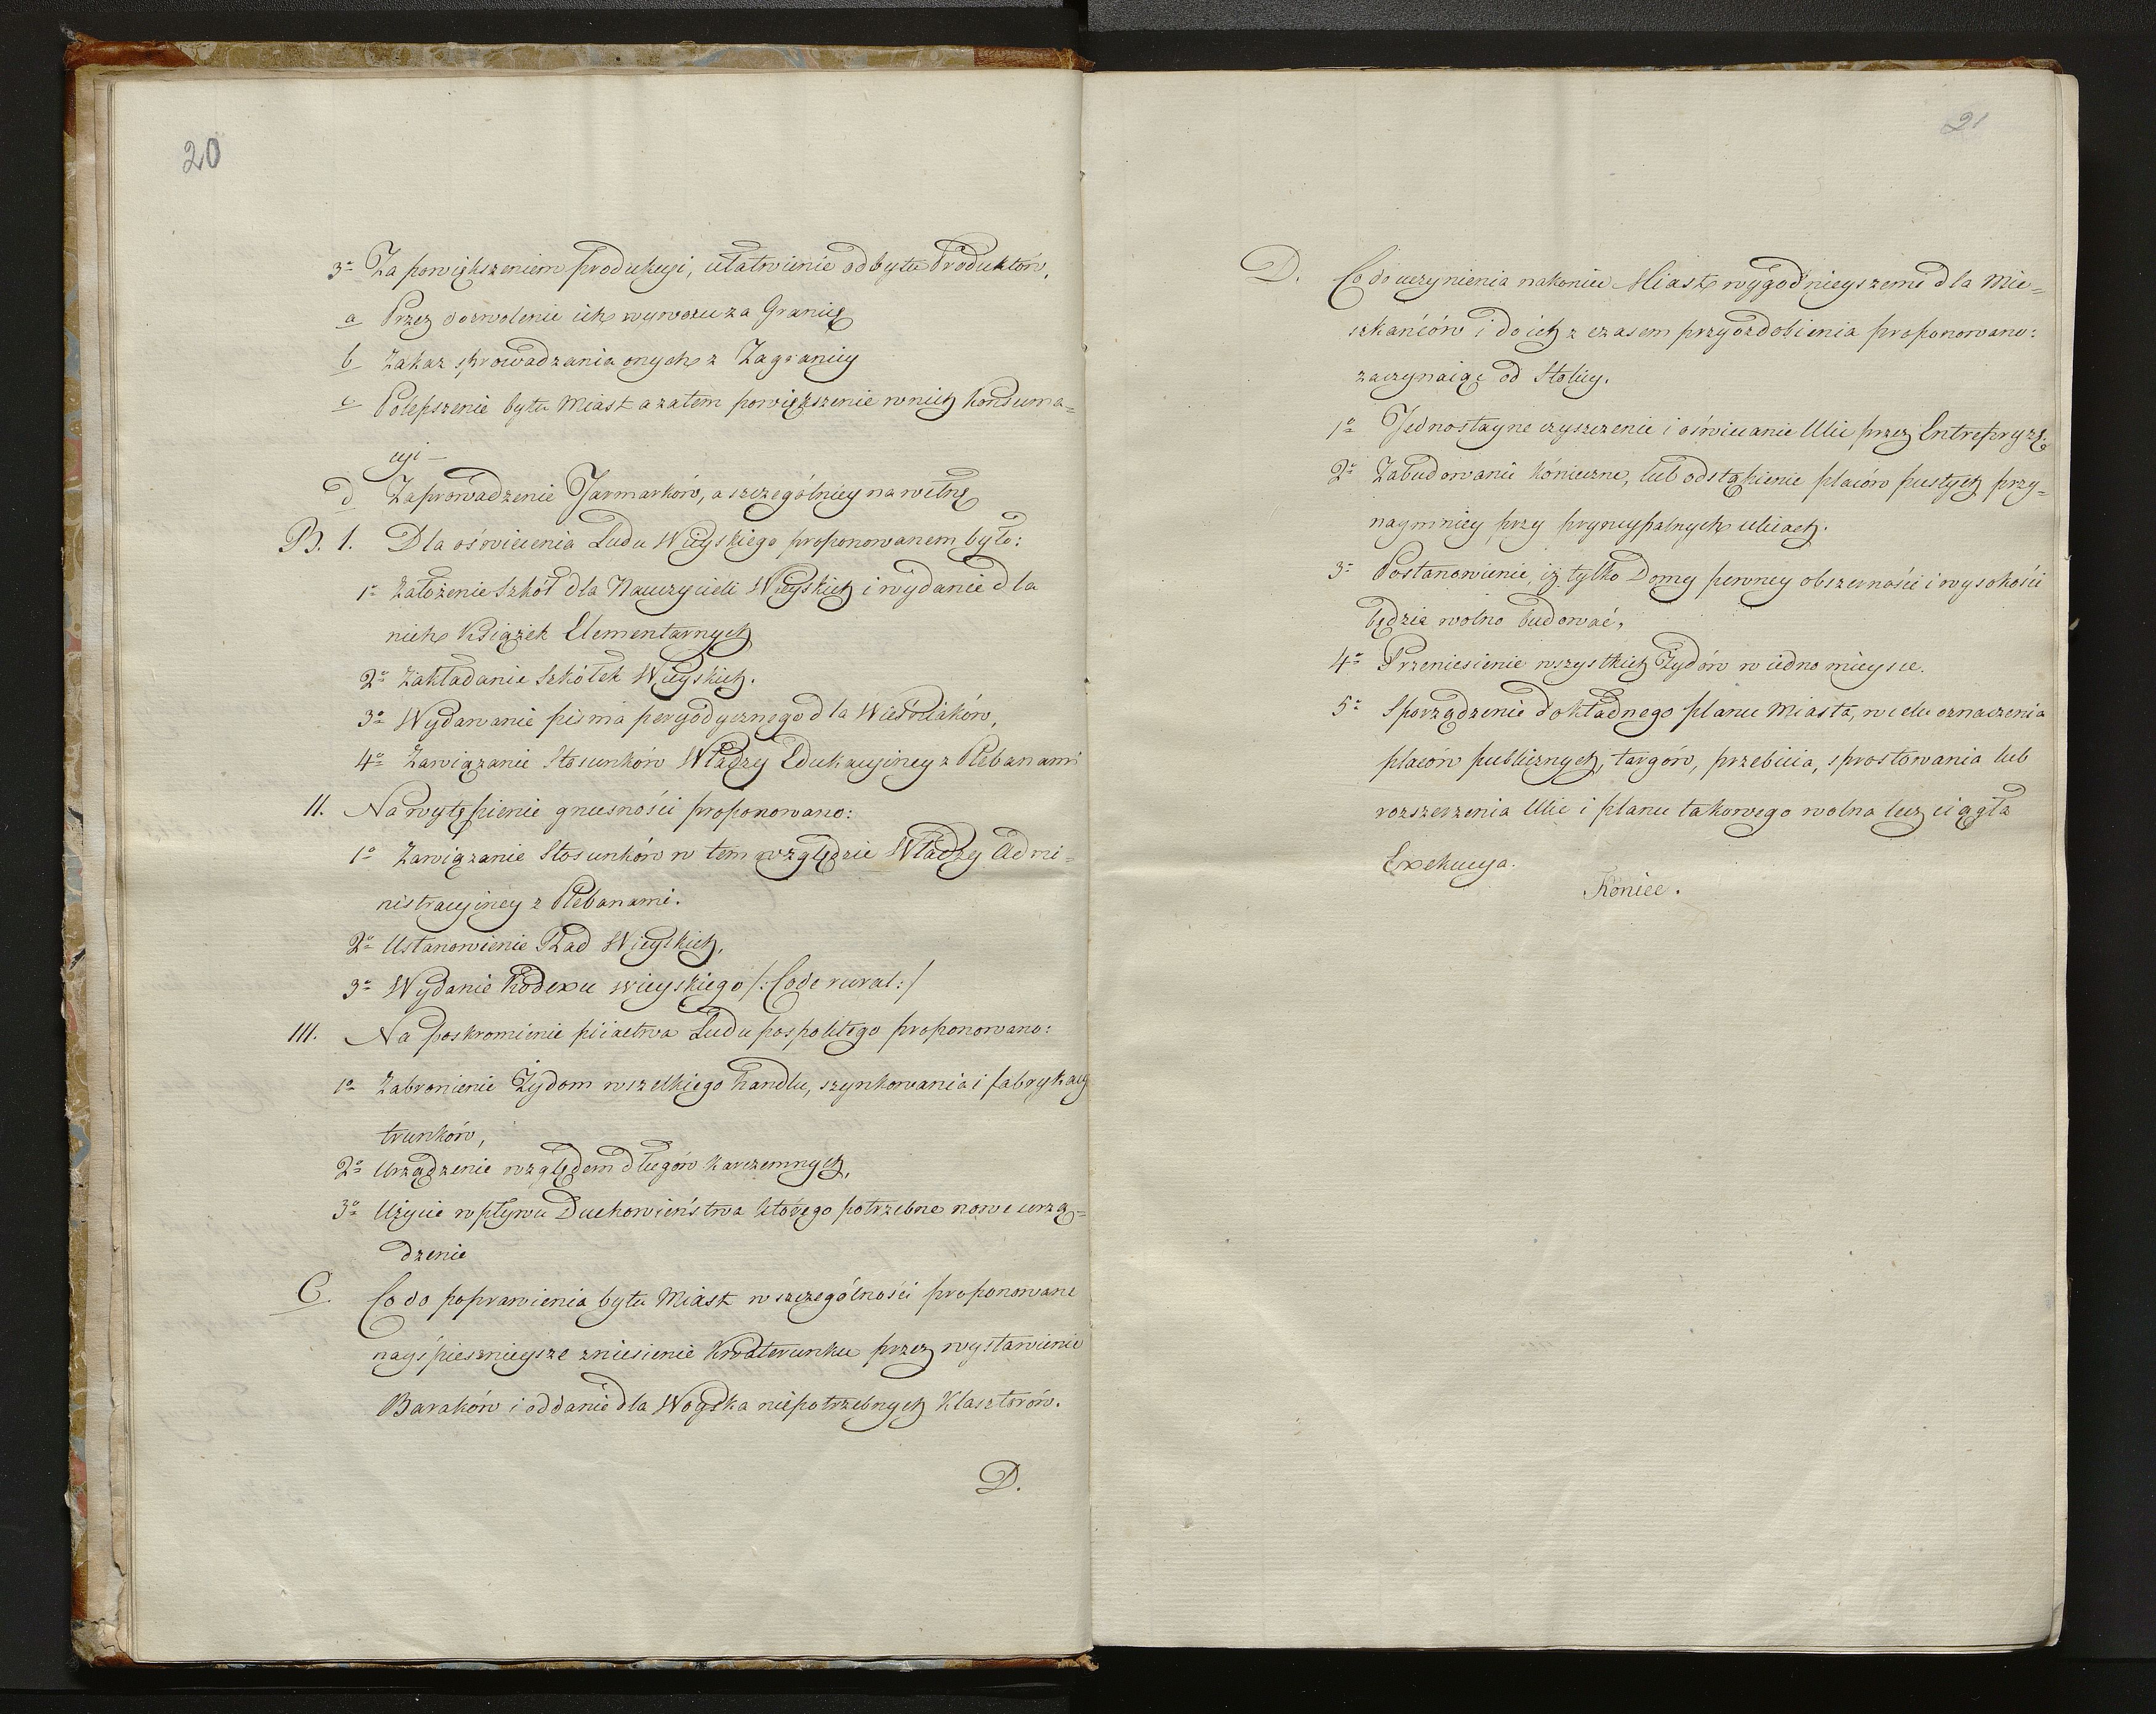 20
3o Za powiększeniem produkcyi, ułatwienie odbytu Produktów,
a Przez dozwolenie ich wywozu za Granicę
b Zakaz sprowadzania onych z Zagranicy
c Polepszenie bytu Miast a zatem powiększenie w nich Konsuma=
cyi –
d Zaprowadzenie Jarmarków, a szczególniey na wełnę
B. 1. Dla oświecenia Ludu Wieyskiego proponowanem było:
1o Założenie Szkół dla Nauczycieli Wieyskich i wydanie dla
nich Książek Elementarnych
2o Zakładanie Szkółek Wieyskich.
3o Wydawanie pisma peryodycznego dla Wieśniaków,
4o Zawiązanie Stosunków Władzy Edukacyiney z Plebanami
II. Na wytępienie gnusności proponowano:
1o Zawiązanie Stosunków w tem względzie Władzy Admi=
nistracyiney z Plebanami.
2o Ustanowienie Rad Wieyskich,
3o Wydanie Kodexu wieyskiego /: Code rural :/
III. Na poskromienie piiactwa Ludu pospolitego proponowano:
1o Zabronienie Żydom wszelkiego handlu, szynkowania i fabrykacyi
trunków,
2o Urządzenie względem długów karczemnych,
3o Użycie wpływu Duchowieństwa którego potrzebne nowe urzą=
dzenie
C. Co do poprawienia bytu Miast w szczególności proponowane
nayśpiesznieysze zniesienie Kwaterunku przez wystawienie
Baraków i oddanie dla Woyska niepotrzebnych Klasztorów.
D.
21
D. Co do uczynienia nakoniec Miast wygodnieyszemi dla Mie=
szkańców i do ich z czasem przyozdobienia proponowano:
zaczynaiąc od Stolicy.
1o Jednostayne czyszczenie i oświecanie Ulic przez Entrepryzę.
2o Zabudowanie konieczne, lub odstąpienie placów pustych przy=
naymniey przy pryncypalnych ulicach.
3o Postanowienie, iż tylko Domy pewney obszerności i wysokości
będzie wolno budować,
4o Przeniesienie wszystkich Żydów w iedno mieysce.
5o Sporządzenie dokładnego planu Miasta, w celu oznaczenia
placów publicznych, targów, przebicia, sprostowania lub
rozszerzenia Ulic i planu takowego wolna lecz ciągła
Exekucya.
Koniec.